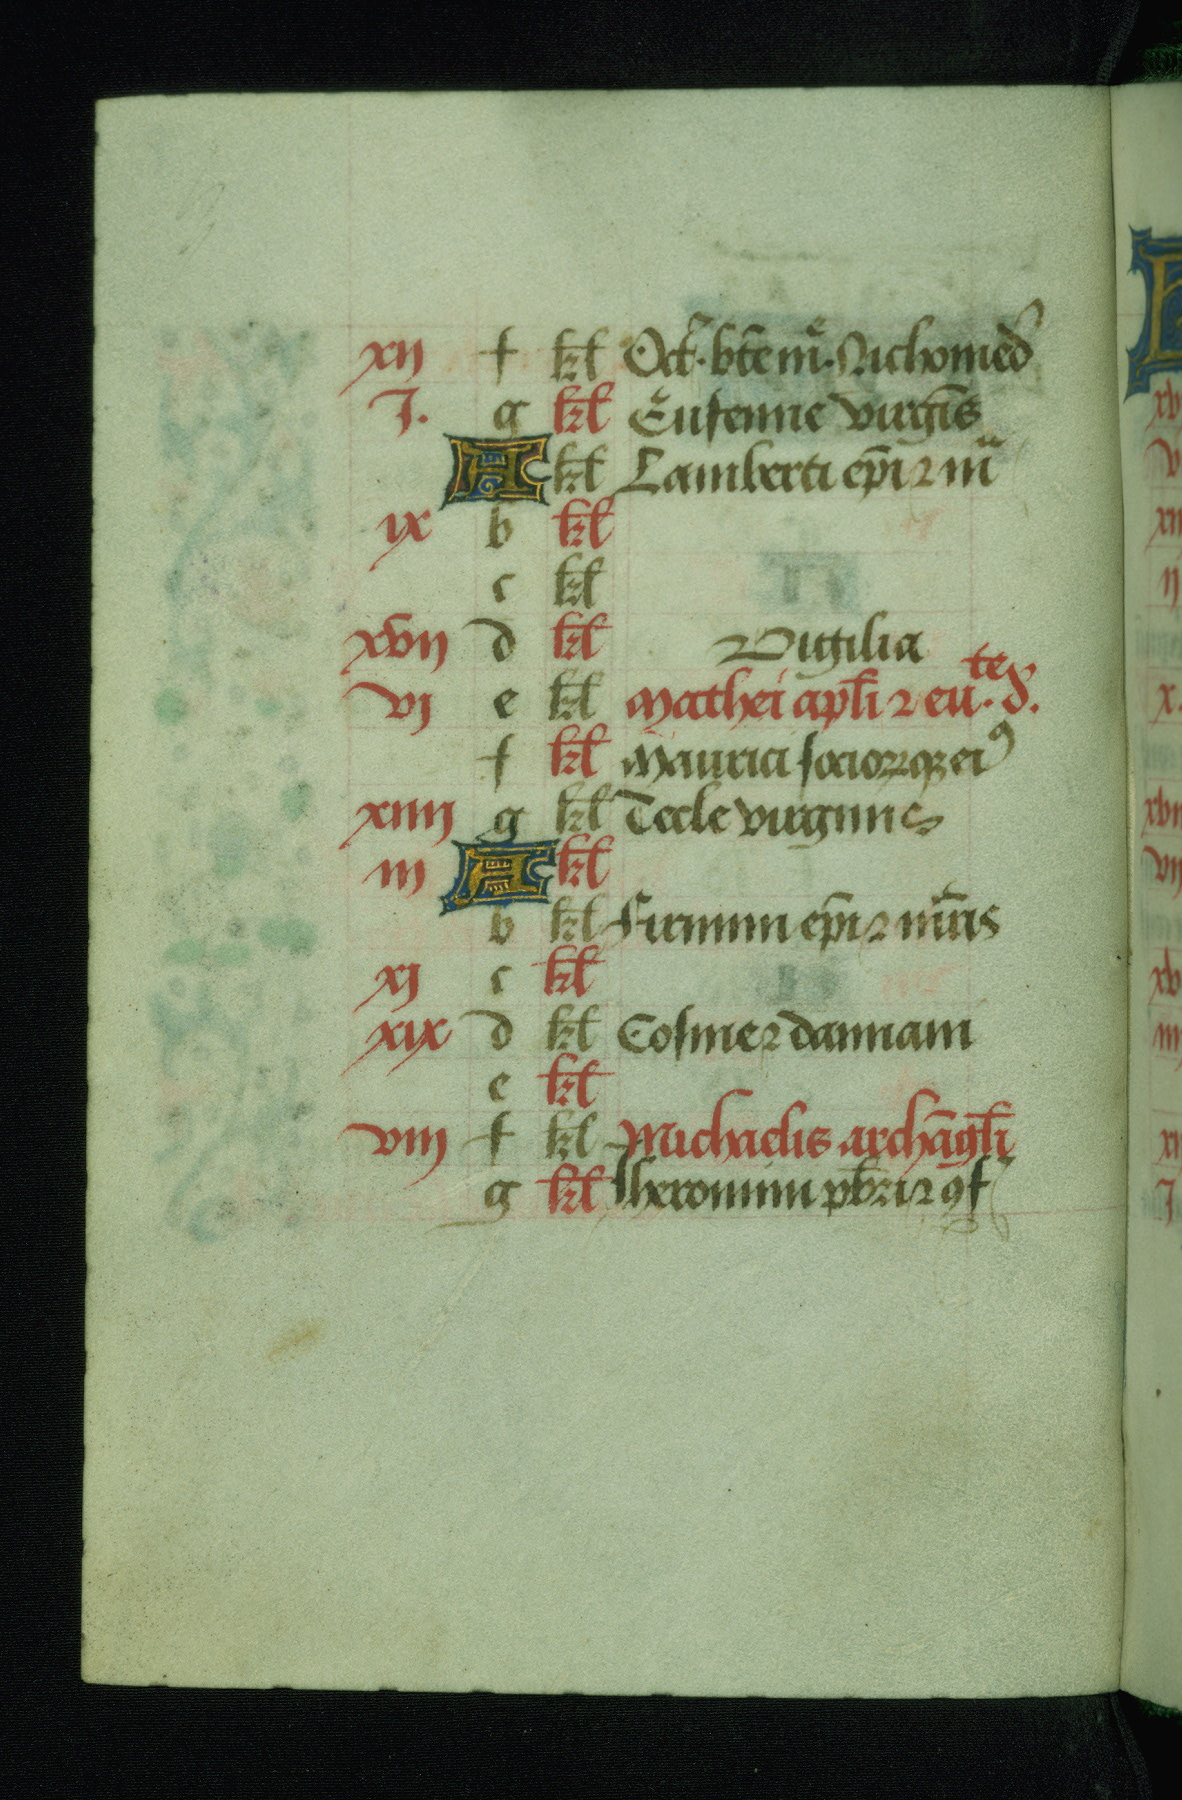 xij f kl Oct. bte m. Nichomed
J. g kl Eufemie virginis
A kl Lamberti epi ⁊ m
ix b kl
c kl
xvij d kl Vigilia
vj e kl Mathei apli ⁊ eu.te d.
f kl Maurici socioruque ei9
xiiij g kl Tecle virginis
iij A kl
b kl Firmini epi ⁊ mris
xj c kl
xix d kl Cosme ⁊ damiani
e kl
viij f kl Michaelis archagli
g kl Iheronimi pbri ⁊ 9f